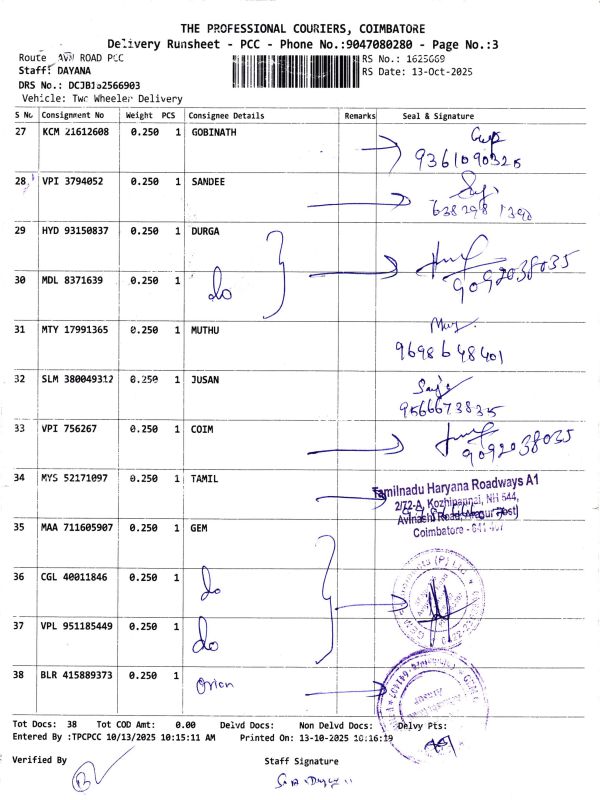 THE PROFESSIONAL COURIERS, COIMBATORE
Delivery Runsheet - PCC - Phone No.:9047080280 - Page No.:3
Route : AVN ROAD PCC
RS No.: 1625669
Staff: DAYANA
RS Date: 13-Oct-2025
DRS No.: DCJB1a2566903
Vehicle: Two Wheeler Delivery
S No Consignment No Weight PCS Consignee Details Remarks Seal & Signature
27 KCM 21612608 0.250 1 GOBINATH
9361090326
28 VPI 3794052 0.250 1 SANDEE
638298 1390
29 HYD 93150837 0.250 1 DURGA
9092038035
30 MDL 8371639 0.250 1 do
31 MTY 17991365 0.250 1 MUTHU
9698648401
32 SLM 380049312 0.250 1 JUSAN
9566673835
33 VPI 756267 0.250 1 COIM
9092038035
34 MYS 52171097 0.250 1 TAMIL
Tamilnadu Haryana Roadways A1
2/72-A, Kozhipannai, NH 544,
Avinashi Road, (Post)
Coimbatore - 641 407
35 MAA 711605907 0.250 1 GEM
36 CGL 40011846 0.250 1 do
37 VPL 951185449 0.250 1 do
38 BLR 415889373 0.250 1 Orion
Tot Docs: 38 Tot COD Amt: 0.00 Delvd Docs: Non Delvd Docs: Delvy Pts:
Entered By :TPCPCC 10/13/2025 10:15:11 AM Printed On: 13-10-2025 10:16:19
Verified By Staff Signature